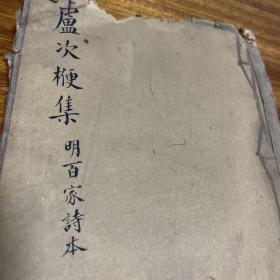 盧次楩集
明百家詩本